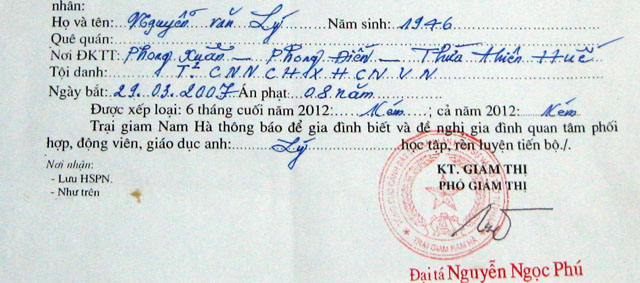 nhân:
Họ và tên: Nguyễn văn Lý Năm sinh: 1946
Quê quán:
Nơi ĐKTT: Phong Xuân - Phong Điền - Thừa Thiên Huế
Tội danh: T² C N N C H X H C N V N
Ngày bắt: 29.03.2007 Án phạt: 08 năm
Được xếp loại: 6 tháng cuối năm 2012: Kém ; cả năm 2012: Kém
Trại giam Nam Hà thông báo để gia đình biết và đề nghị gia đình quan tâm phối
hợp, động viên, giáo dục anh: Lý học tập, rèn luyện tiến bộ./.
Nơi nhận:
- Lưu HSPN.
- Như trên
KT. GIÁM THỊ
PHÓ GIÁM THỊ
TRẠI GIAM NAM HÀ
Đại tá Nguyễn Ngọc Phú